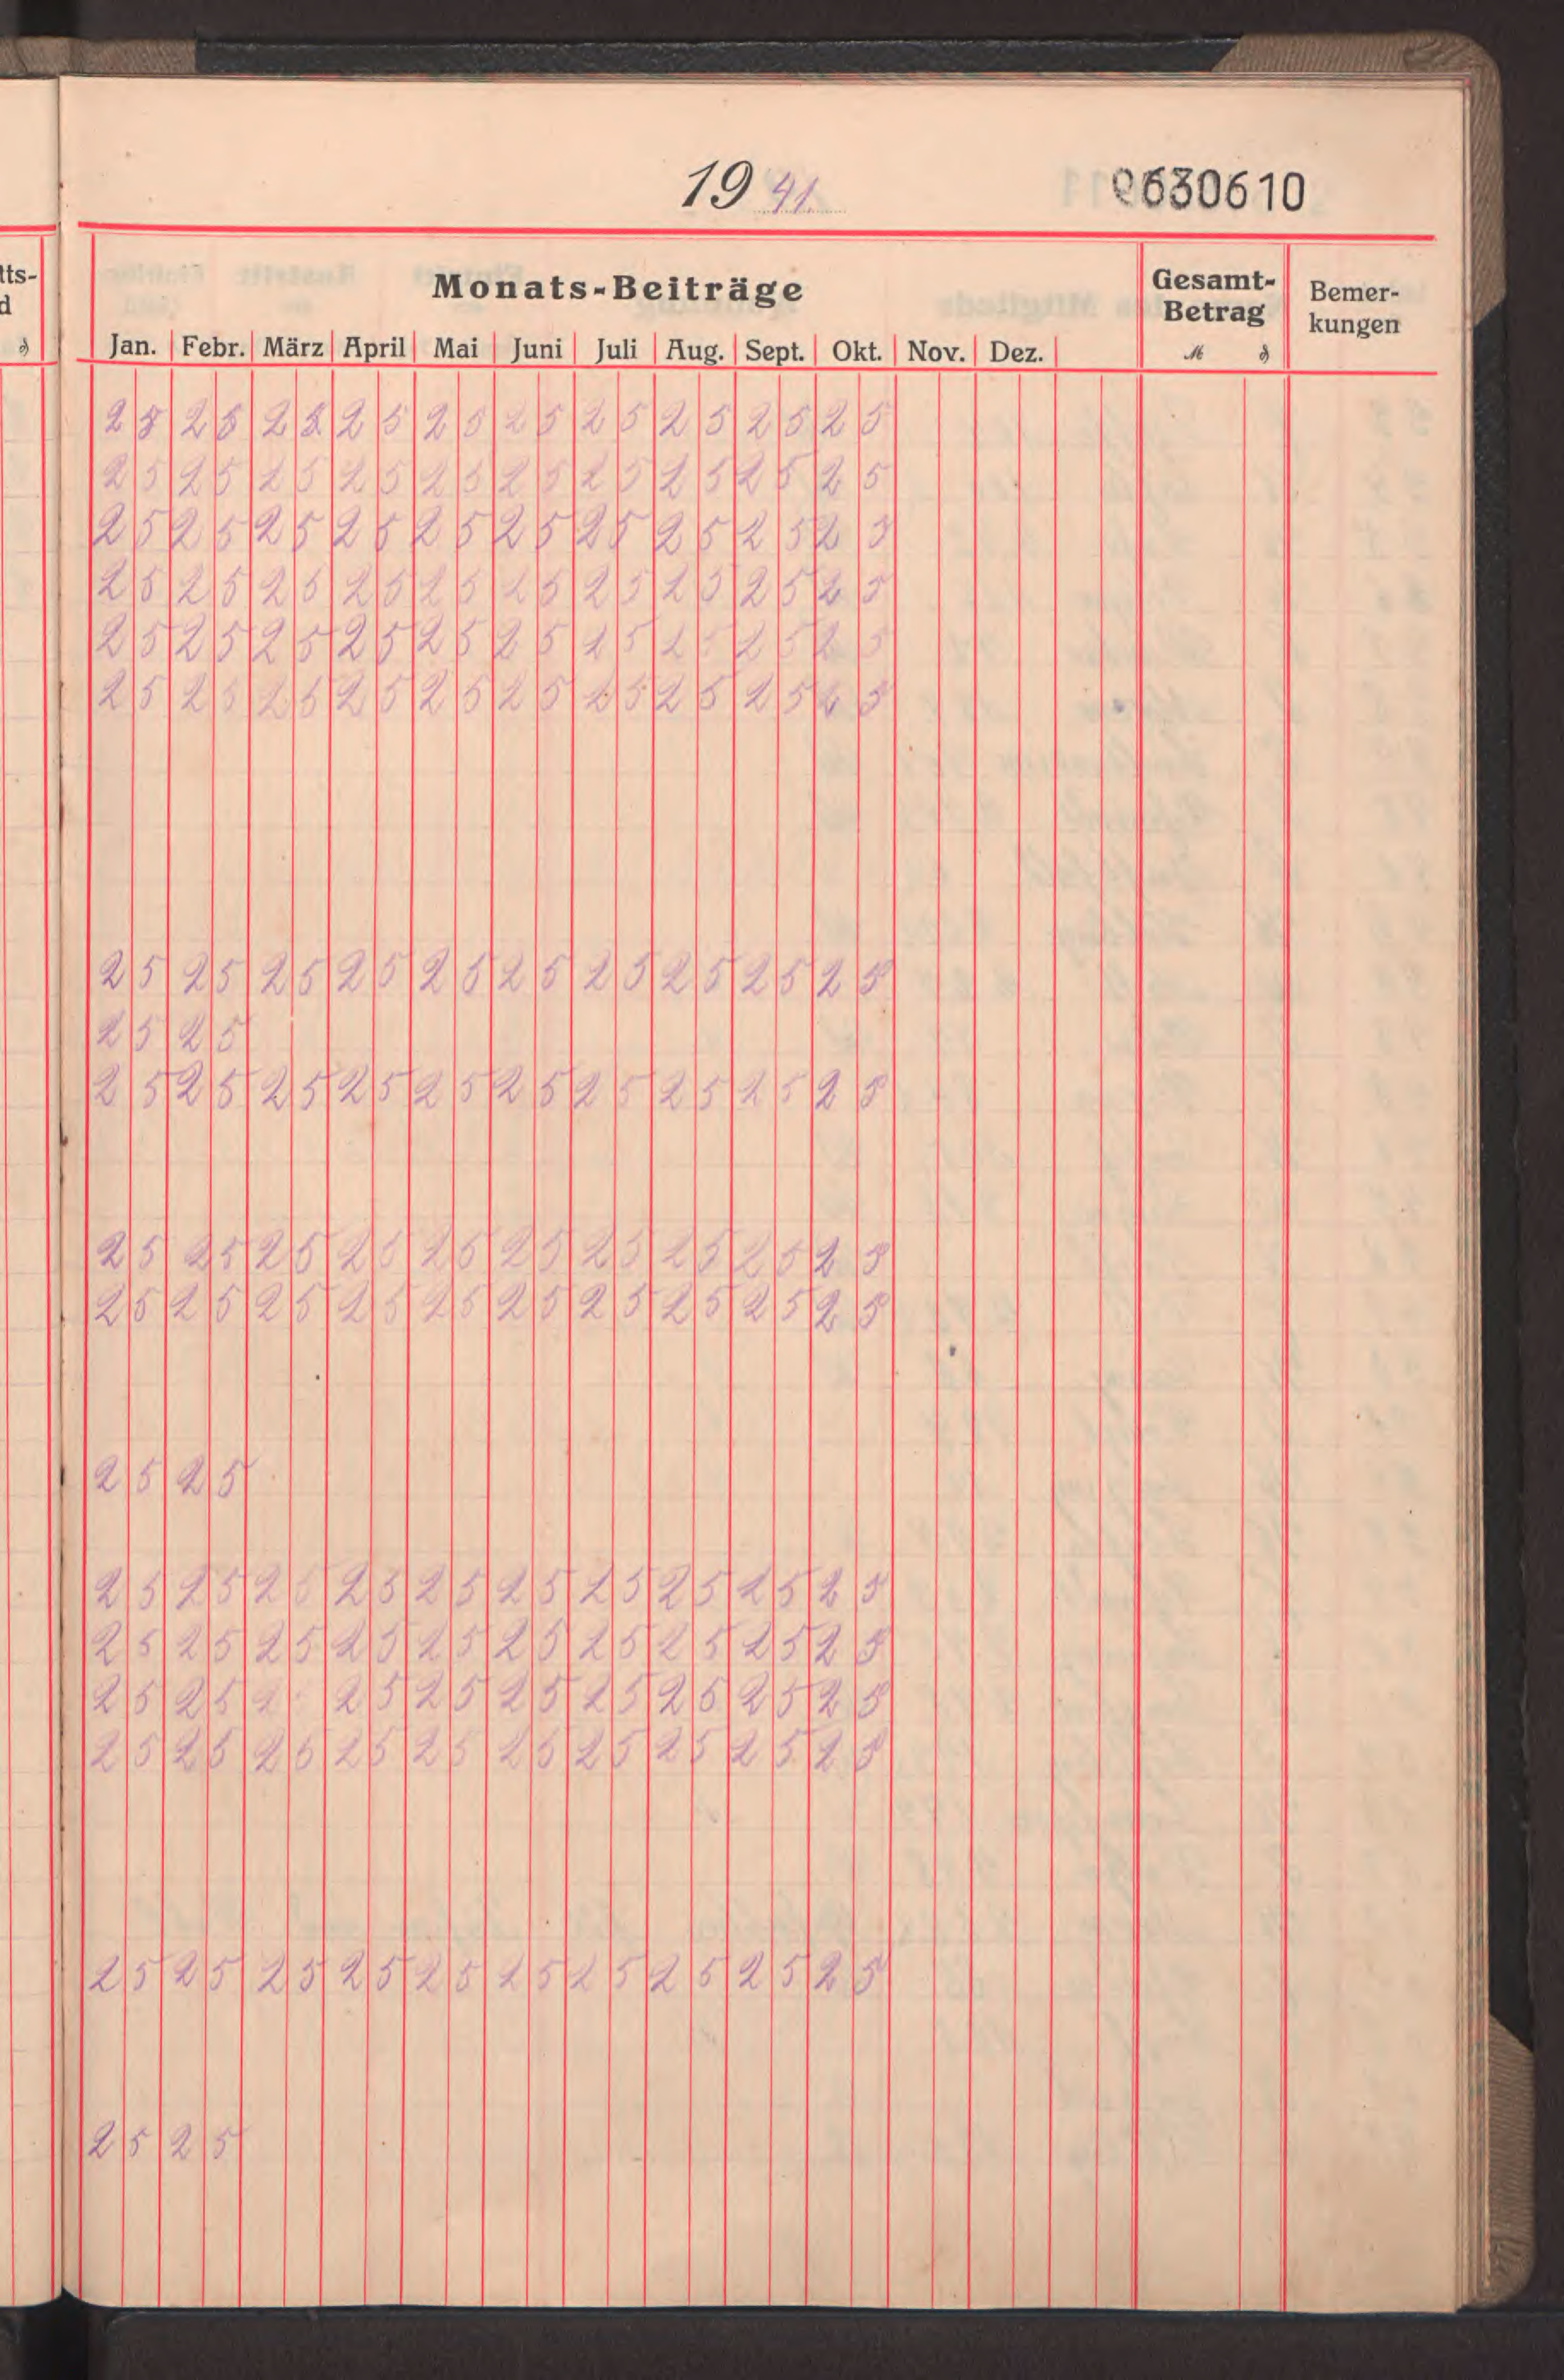 19 41. 0630610
Monats-Beiträge Gesamt-Betrag Bemer-kungen
Jan. Febr. März April Mai Juni Juli Aug. Sept. Okt. Nov. Dez. ℳ ₰
25 25 25 25 25 25 25 25 25 25
25 25 25 25 25 25 25 25 25 25
25 25 25 25 25 25 25 25 25 25
25 25 25 25 25 25 25 25 25 25
25 25 25 25 25 25 25 25 25 25
25 25 25 25 25 25 25 25 25 25
25 25 25 25 25 25 25 25 25 25
25 25
25 25 25 25 25 25 25 25 25 25
25 25 25 25 25 25 25 25 25 25
25 25 25 25 25 25 25 25 25 25
25 25
25 25 25 25 25 25 25 25 25 25
25 25 25 25 25 25 25 25 25 25
25 25 2 25 25 25 25 25 25 25
25 25 25 25 25 25 25 25 25 25
25 25 25 25 25 25 25 25 25 25
25 25